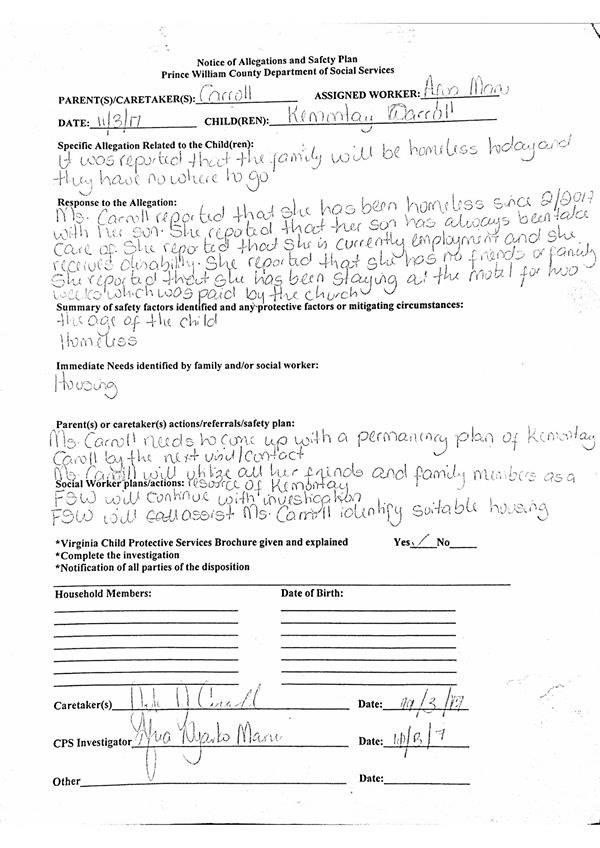 Notice of Allegations and Safety Plan
Prince William County Department of Social Services
PARENT(S)/CARETAKER(S): Carroll ASSIGNED WORKER:
DATE: 11/3/17 CHILD(REN): Kemontay Carroll
Specific Allegation Related to the Child(ren):
It was reported that the family will be homeless today and
they have no where to go
Response to the Allegation:
Ms. Carroll reported that she has been homeless since 2/2017
with her son. She reported that her son has always been take
care of. She reported that she is currently employment and she
receives disability. She reported that she has no friends or family
She reported that she has been staying at the motel for two
weeks which was paid by the church
Summary of safety factors identified and any protective factors or mitigating circumstances:
the age of the child
Homeless
Immediate Needs identified by family and/or social worker:
Housing
Parent(s) or caretaker(s) actions/referrals/safety plan:
Ms. Carroll needs to come up with a permanency plan of Kemontay
Caroll by the next visit/contact
Ms. Carroll will utilize all her friends and family members as a
Social Worker plans/actions: resource of Kemontay
FSW will continue with investigation
FSW will assist Ms. Carroll identify suitable housing
*Virginia Child Protective Services Brochure given and explained Yes ✓ No
*Complete the investigation
*Notification of all parties of the disposition
Household Members: Date of Birth:
Caretaker(s) Date:
CPS Investigator Date:
Other Date: